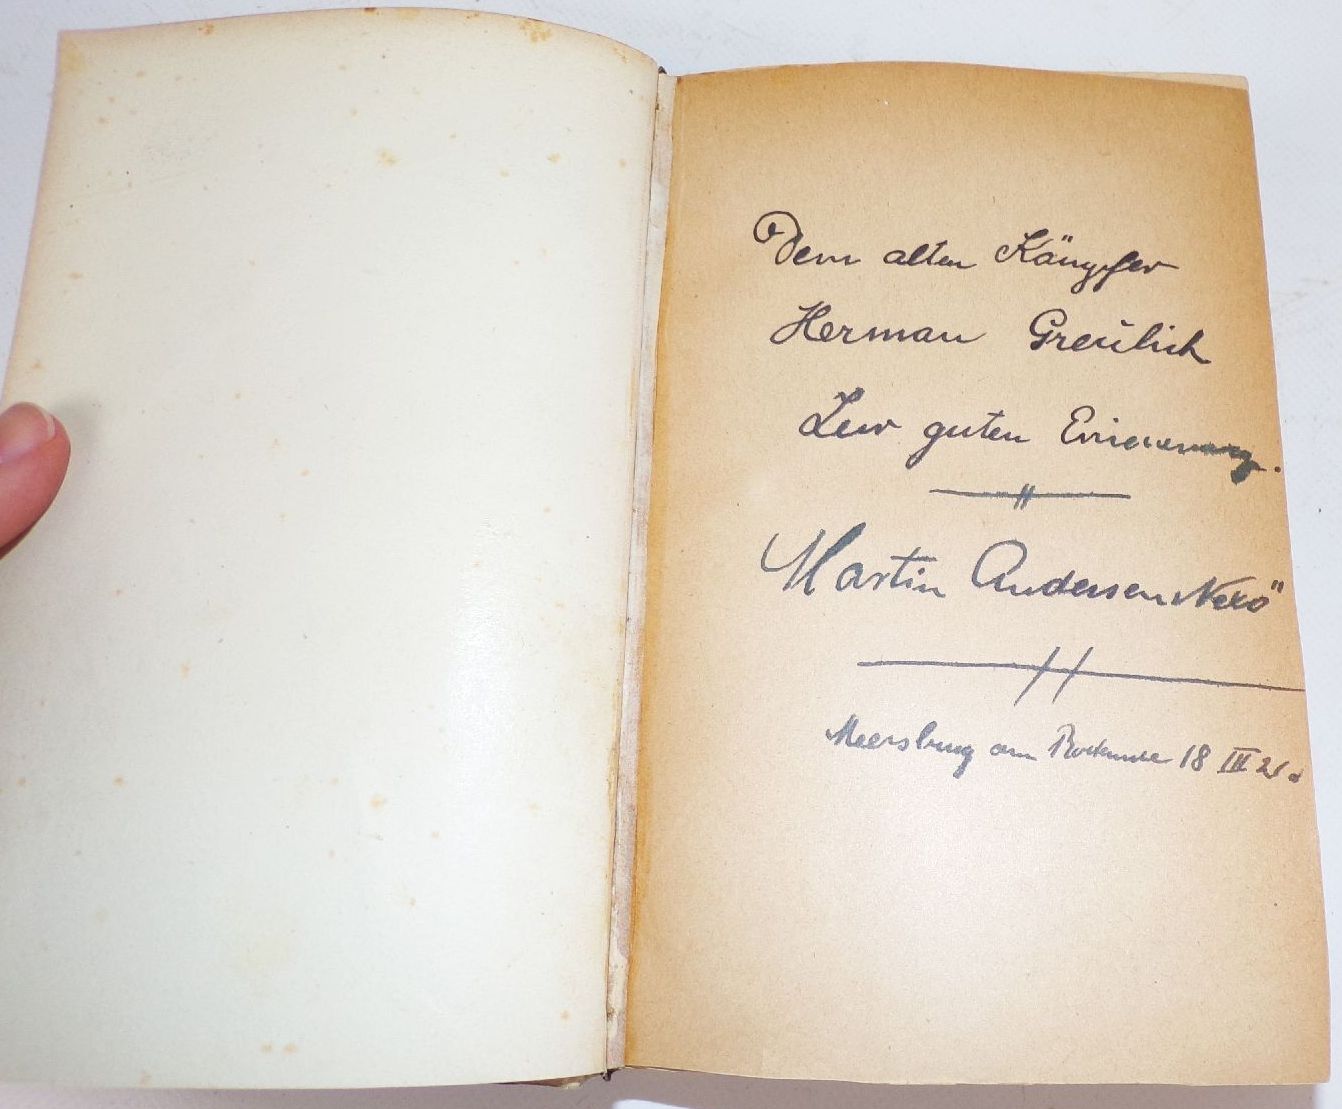 Dem alten Kämpfer
Herman Greulich
Zur guten Erinnerung.
Martin Andersen Nexö
Meersburg am Bodensee 18 III